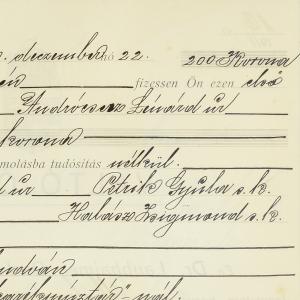 deczember hó 22. 200 Korona
én fizessen Ön ezen első
Andrócsecz Lénárd úr
korona
molásba tudósítás nélkül.
úr Petrik Gyula s.k.
Halász Zsigmond s.k.
udván
nál.